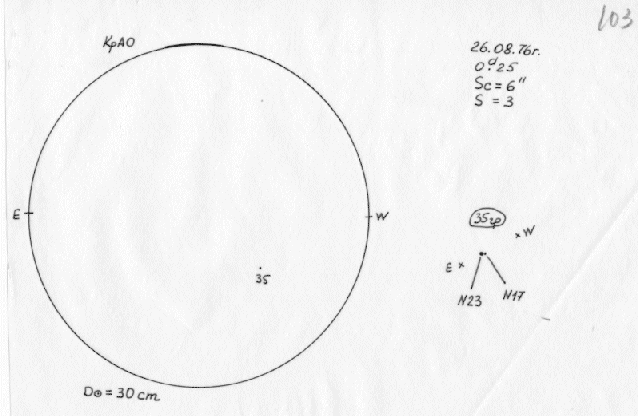 103
КрАО
26.08.76г.
0ᵈ.25
Sc = 6"
S = 3
E
W
35
35гр
W
E
N23
N17
D⊙ = 30 cm